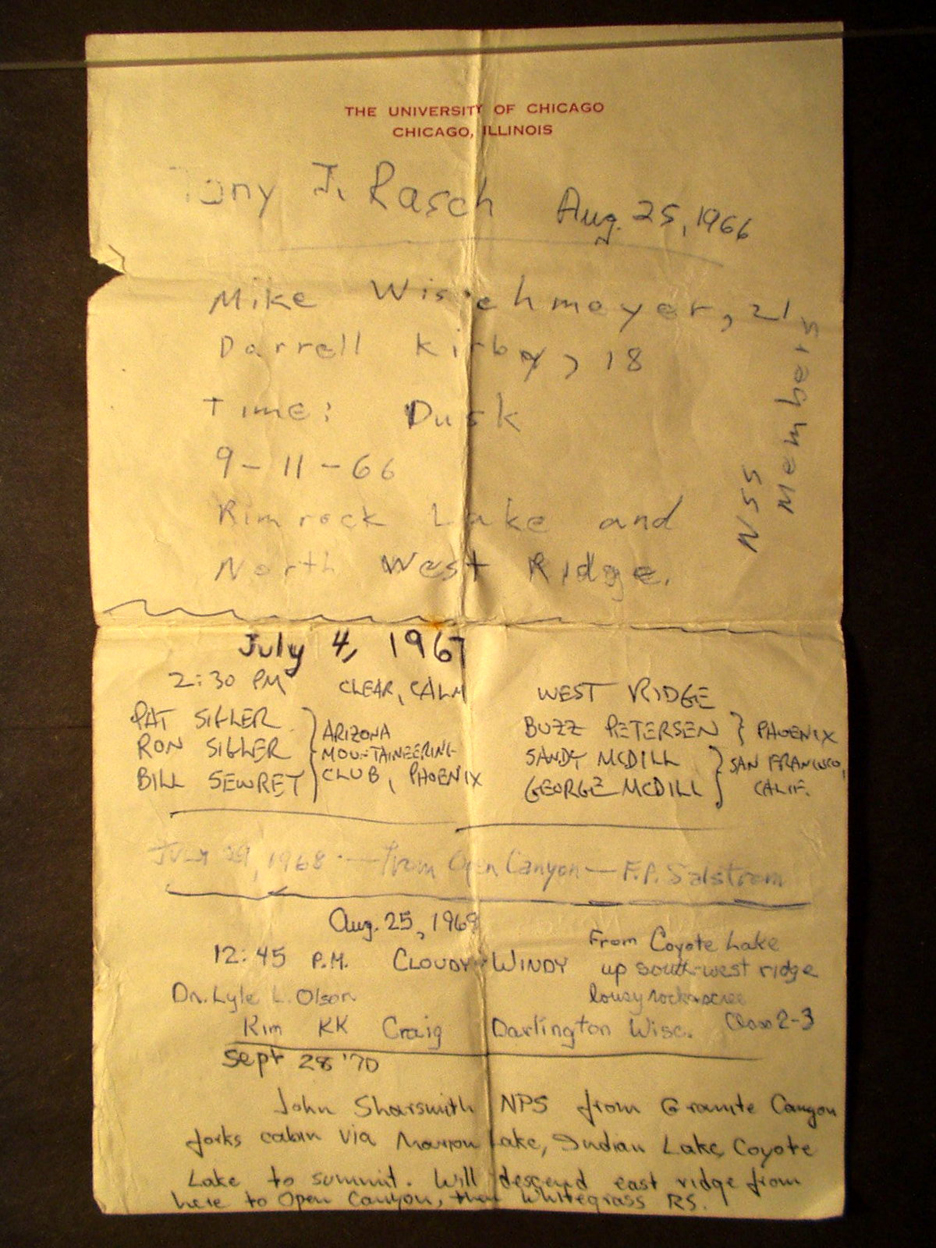 THE UNIVERSITY OF CHICAGO
CHICAGO, ILLINOIS
Tony J. Rasch Aug. 25, 1966
Mike Wischmeyer, 21
Darrell Kirby, 18
NSS Members
Time: Dusk
9-11-66
Rimrock Lake and
North West Ridge.
July 4, 1967
2:30 PM CLEAR, CALM WEST RIDGE
PAT SIGLER
RON SIGLER
BILL SEWRET
ARIZONA
MOUNTAINEERING
CLUB, PHOENIX
BUZZ PETERSEN } PHOENIX
SANDY MCDILL
GEORGE MCDILL
SAN FRANCISCO,
CALIF.
July 29, 1968 — from Open Canyon — F.P. Salstrom
Aug. 25, 1969
12:45 P.M. CLOUDY-WINDY
From Coyote Lake
up south-west ridge
lousy rock-scree
Class 2-3
Dr. Lyle L. Olson
Kim KK Craig Darlington Wisc.
Sept 28 '70
John Sharsmith NPS from Granite Canyon
forks cabin via Marion Lake, Indian Lake, Coyote
Lake to summit. Will descend east ridge from
here to Open Canyon, then Whitegrass RS.